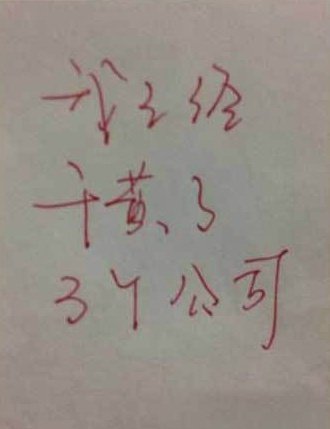 我已经
干黄了
3个公司